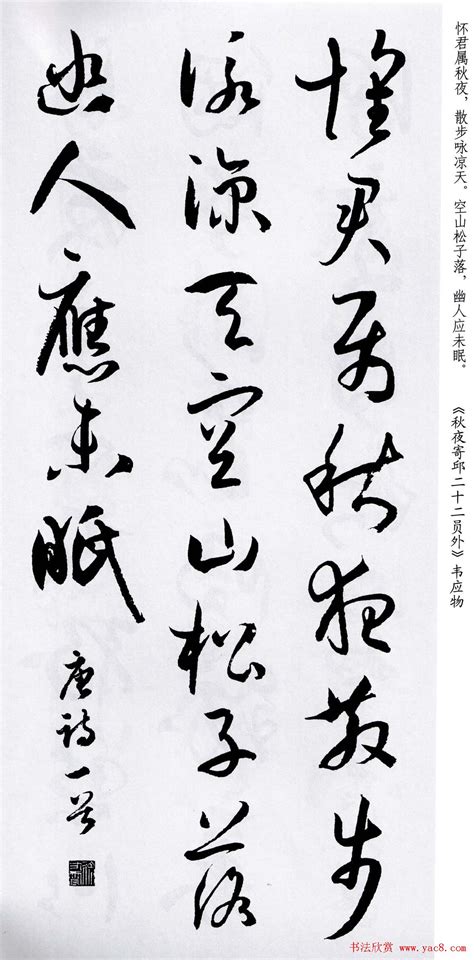 懷君属秋夜散步
詠涼天空山松子落
幽人應未眠
唐詩一首
怀君属秋夜，散步咏凉天。空山松子落，幽人应未眠。
《秋夜寄邱二十二员外》韦应物
书法欣赏 www.yac8.com